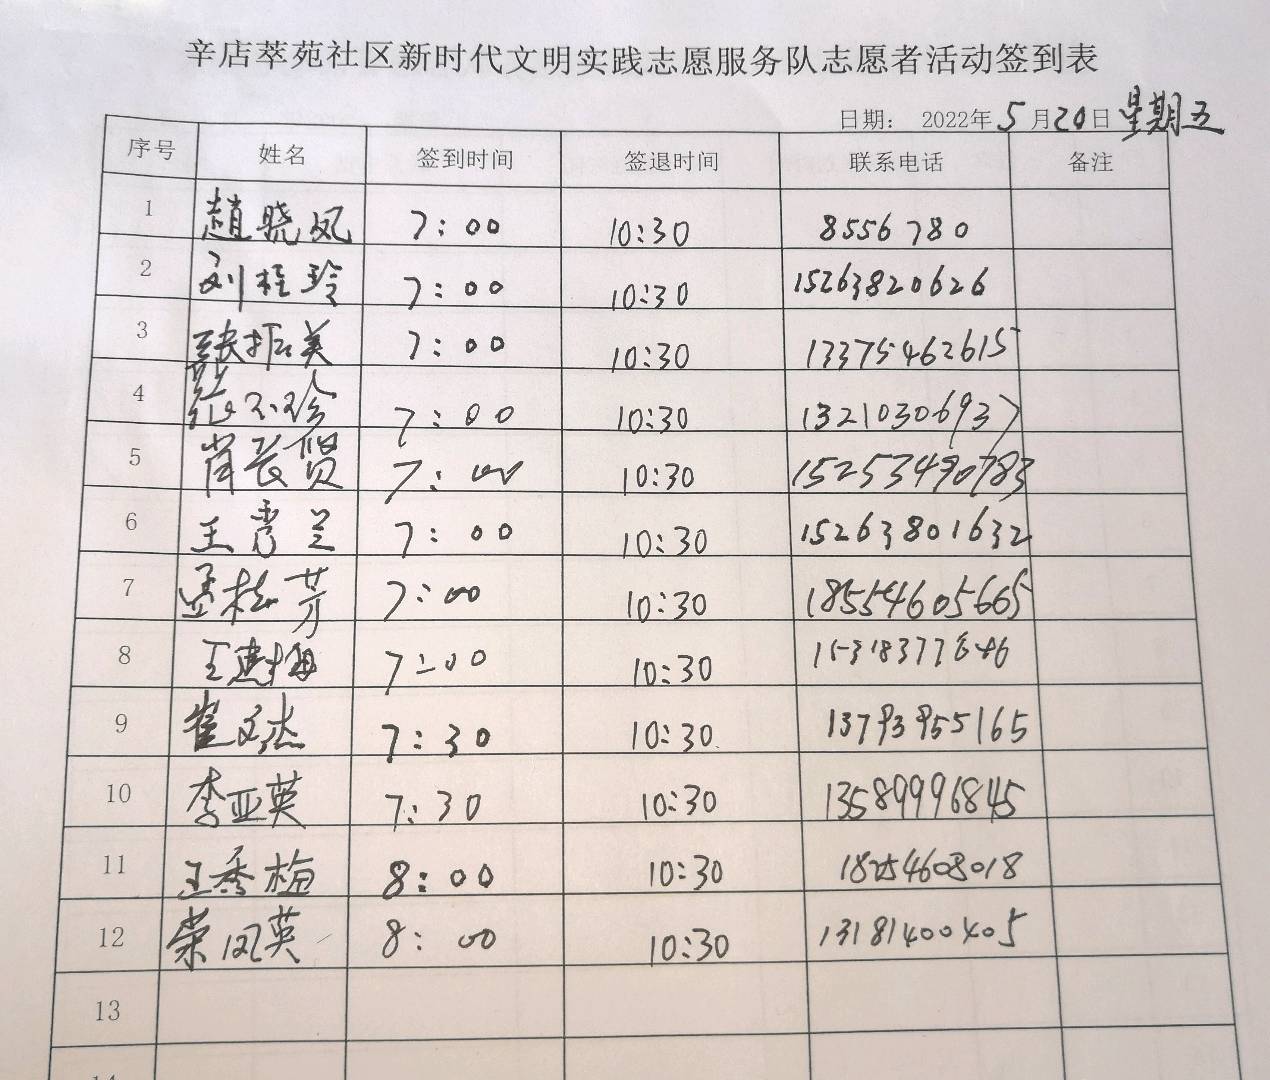 辛店萃苑社区新时代文明实践志愿服务队志愿者活动签到表
日期： 2022年5月20日 星期五
序号 姓名 签到时间 签退时间 联系电话 备注
1 趙晓凤 7:00 10:30 8556780
2 刘桂玲 7:00 10:30 15263820626
3 张振美 7:00 10:30 13375462615
4 7:00 10:30 13210306937
5 肖长贤 7:00 10:30 15253490783
6 王秀兰 7:00 10:30 15263801632
7 孟桂芳 7:00 10:30 18554605665
8 王建梅 7:00 10:30 15318377646
9 崔文杰 7:30 10:30 13793955165
10 李亚英 7:30 10:30 13589996845
11 王秀梅 8:00 10:30 18254608018
12 荣凤英 8:00 10:30 13181400405
13